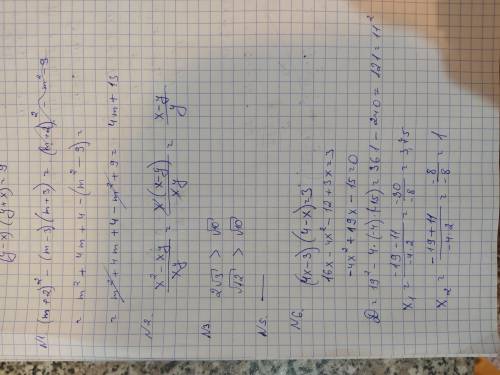 (y-x)(y+x) = 9
N1 (m+2)² - (m-3)(m+3) = (m+2)² - m² - 9
= m² + 4m + 4 - (m² - 9) =
= m² + 4m + 4 - m² + 9 = 4m + 13
N2. (x² - xy)/(xy) = (x(x-y))/(xy) = (x-y)/y
N3 2√3 > √10
√12 > √10
N5. ——
N6. (4x-3)(4-x) = 3
16x - 4x² - 12 + 3x = 3
-4x² + 19x - 15 = 0
D = 19² - 4·(-4)(-15) = 361 - 240 = 121 = 11²
x₁ = (-19-11)/(-4·2) = (-30)/(-8) = 3,75
x₂ = (-19+11)/(-4·2) = (-8)/(-8) = 1